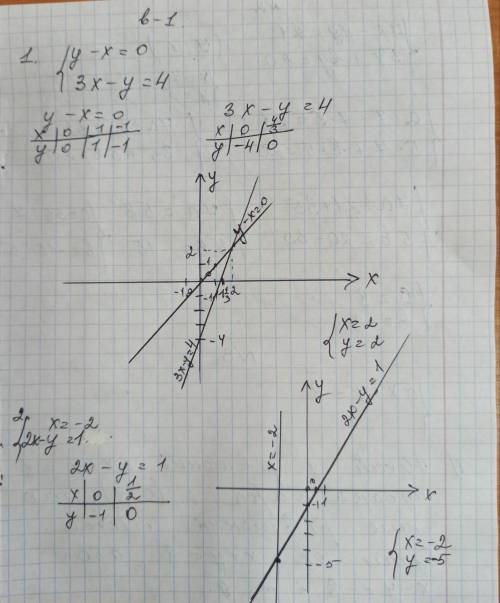 в-1.
1. { y-x=0
3x-y=4
y-x=0
x | 0 | 1 | -1
y | 0 | 1 | -1
3x-y=4
x | 0 | 4/3
y | -4 | 0
y
y-x=0
2
1
-1 0 1 1 1/3 2 x
-1
-4
3x-y=4
{ x=2
y=2
2. { x=-2
2x-y=1
2x-y=1
x | 0 | 1/2
y | -1 | 0
y
2x-y=1
x=-2
0 1 x
-1
-5
{ x=-2
y=-5